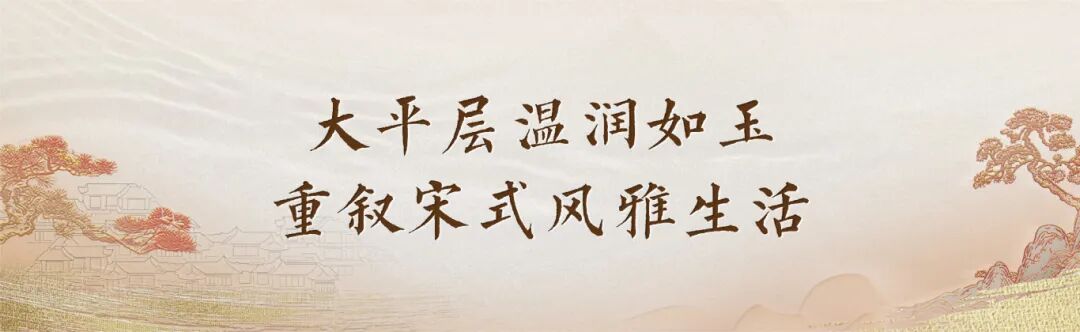 大平层温润如玉
重叙宋式风雅生活